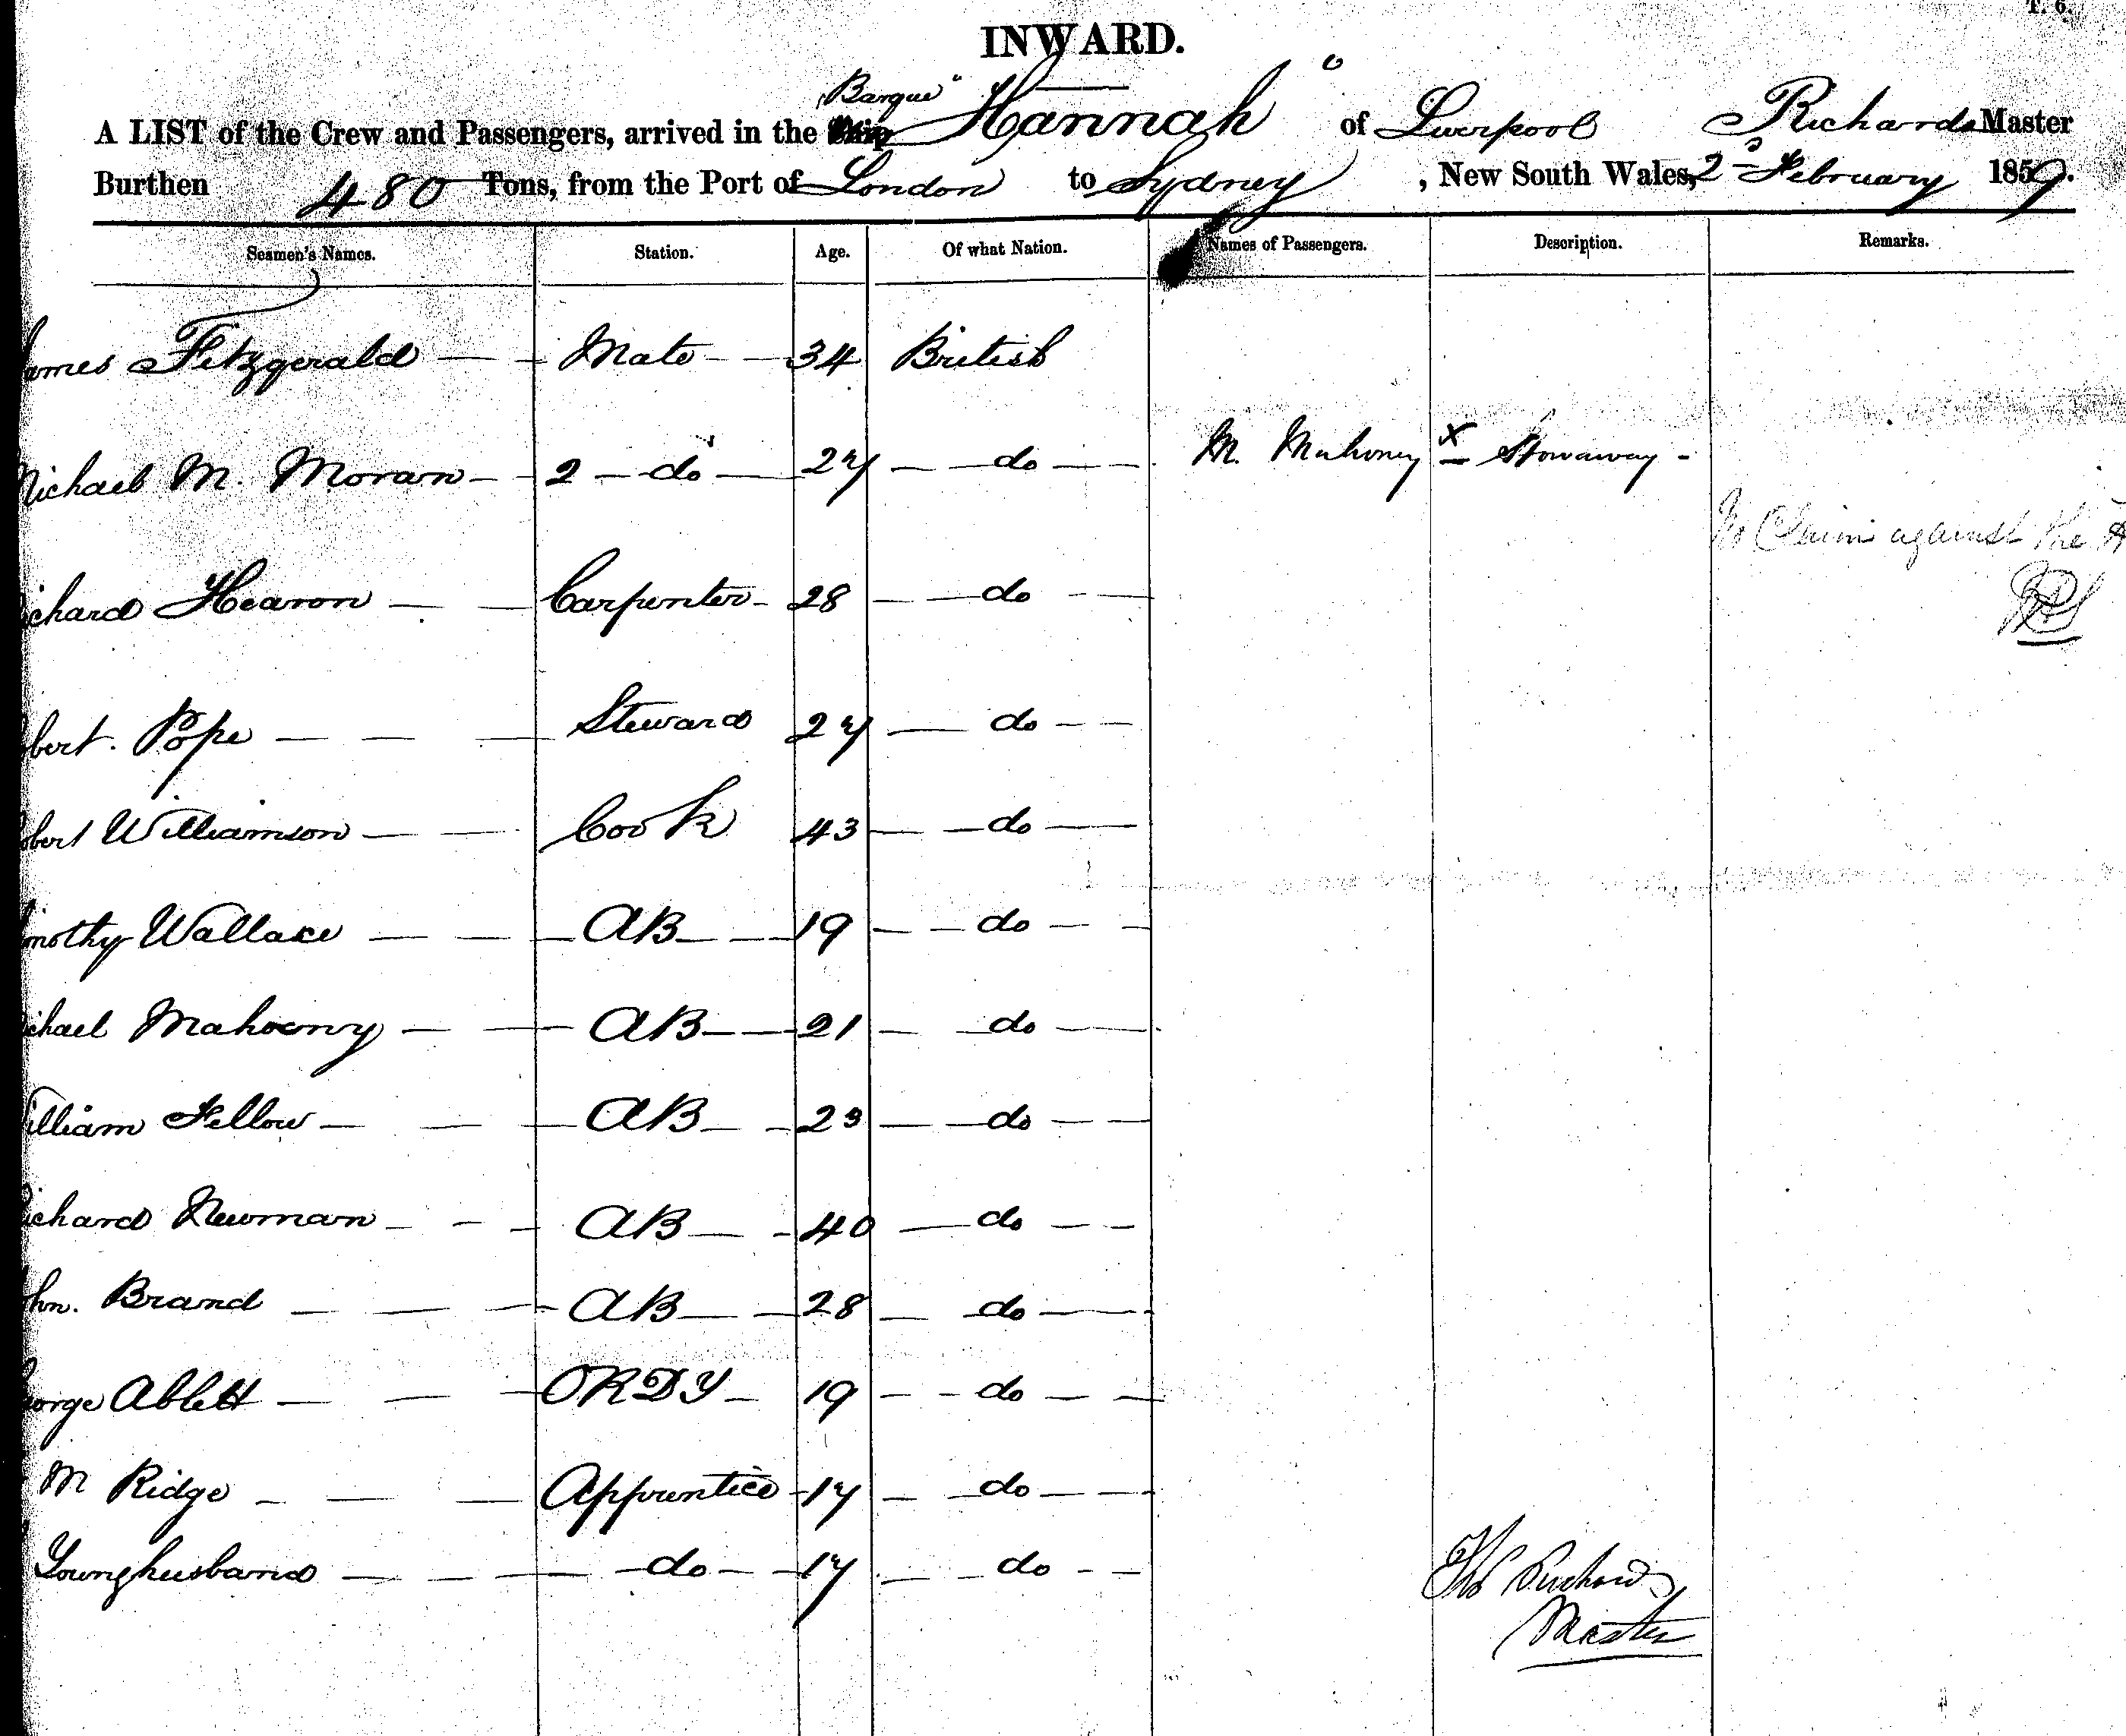 T. 6.
INWARD.
"Barque"
A LIST of the Crew and Passengers, arrived in the Ship Hannah of Liverpool Richards Master
Burthen 480 Tons, from the Port of London to Sydney, New South Wales, 2d February 1859.
Seamen's Names. Station. Age. Of what Nation. Names of Passengers. Description. Remarks.
ames Fitzgerald — — Mate — — 34 British
Michael M. Moran — — 2 — do — 27 — — do — — M. Mahoney x Stowaway -
No Claim against the
ichard Hearon — — Carpenter — 28 — — do — —
bert. Pope — — — Steward 27 — do — —
obert Williamson — — Cook 43 — — do —
imothy Wallace — — — AB — — 19 — — do — —
ichael Mahoeny — — AB — — 21 — — do — —
illiam Fellow — — — AB — — 23 — — do — —
ichard Newman — — — AB — — 40 — do — —
ohn. Brand — — — AB — — 28 — do — —
eorge Ablett — — — ORDY — 19 — — do — —
M Ridge — — — Apprentice — 17 — — do — —
Younghusband — — — — do — — 17 — — do — —
Thos Richards
Master